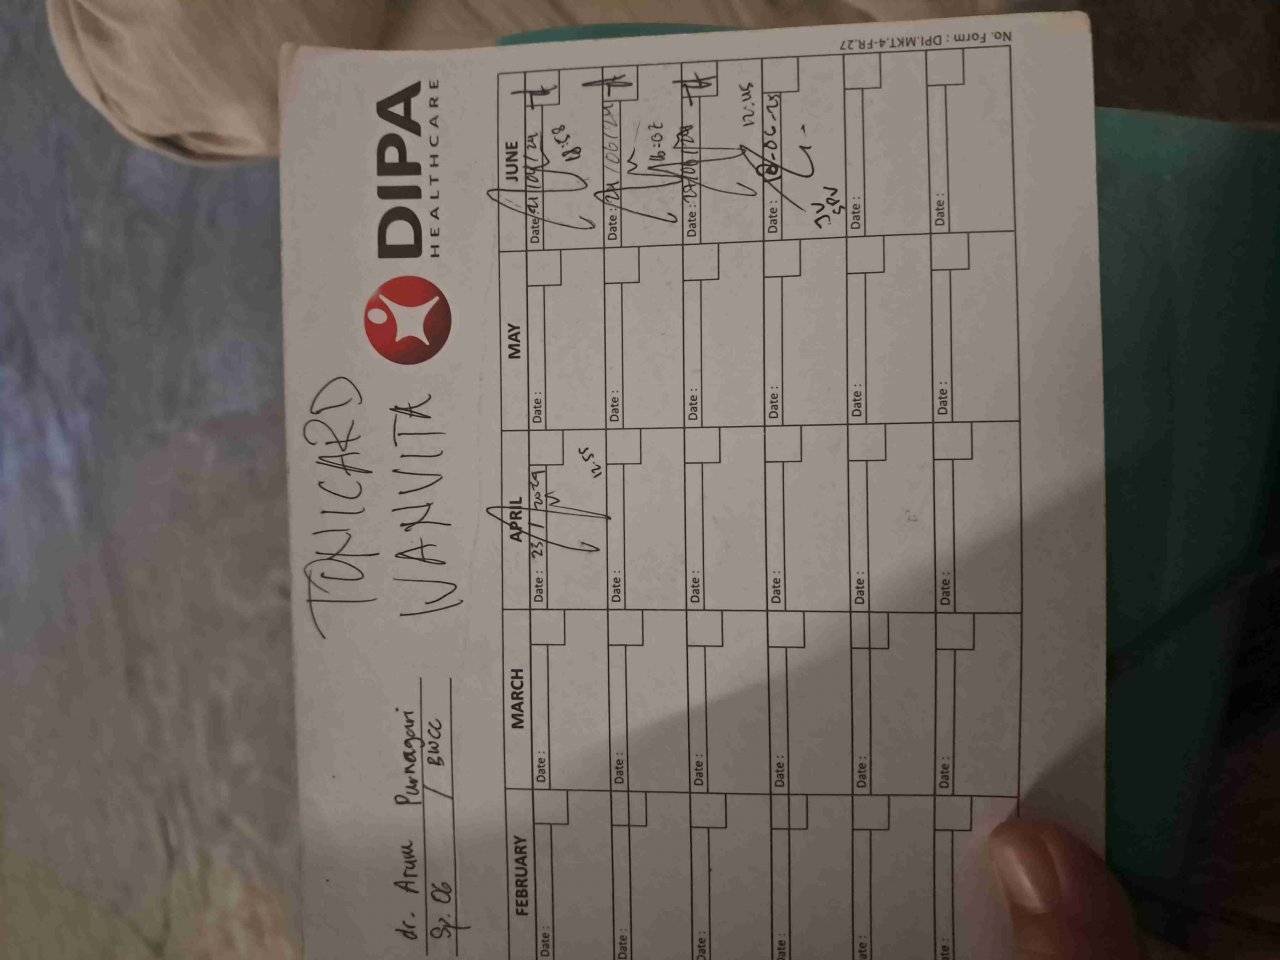 dr. Arum Purnagari
Sp. OG / BWCC
TONICARD
WANVITA
DIPA
HEALTHCARE
No. Form : DPI.MKT.4-FR.27
FEBRUARY MARCH APRIL MAY JUNE
Date : Date : Date : 23 / 2024 Date : Date :
12.55 18:58
Date : Date : Date : Date : Date : 24/06/24
16:02
Date : Date : Date : Date : Date : 27/06/24
12:45
Date : Date : Date : Date : Date : 18-06-25
Date : Date : Date : Date : Date :
Date : Date : Date : Date : Date :